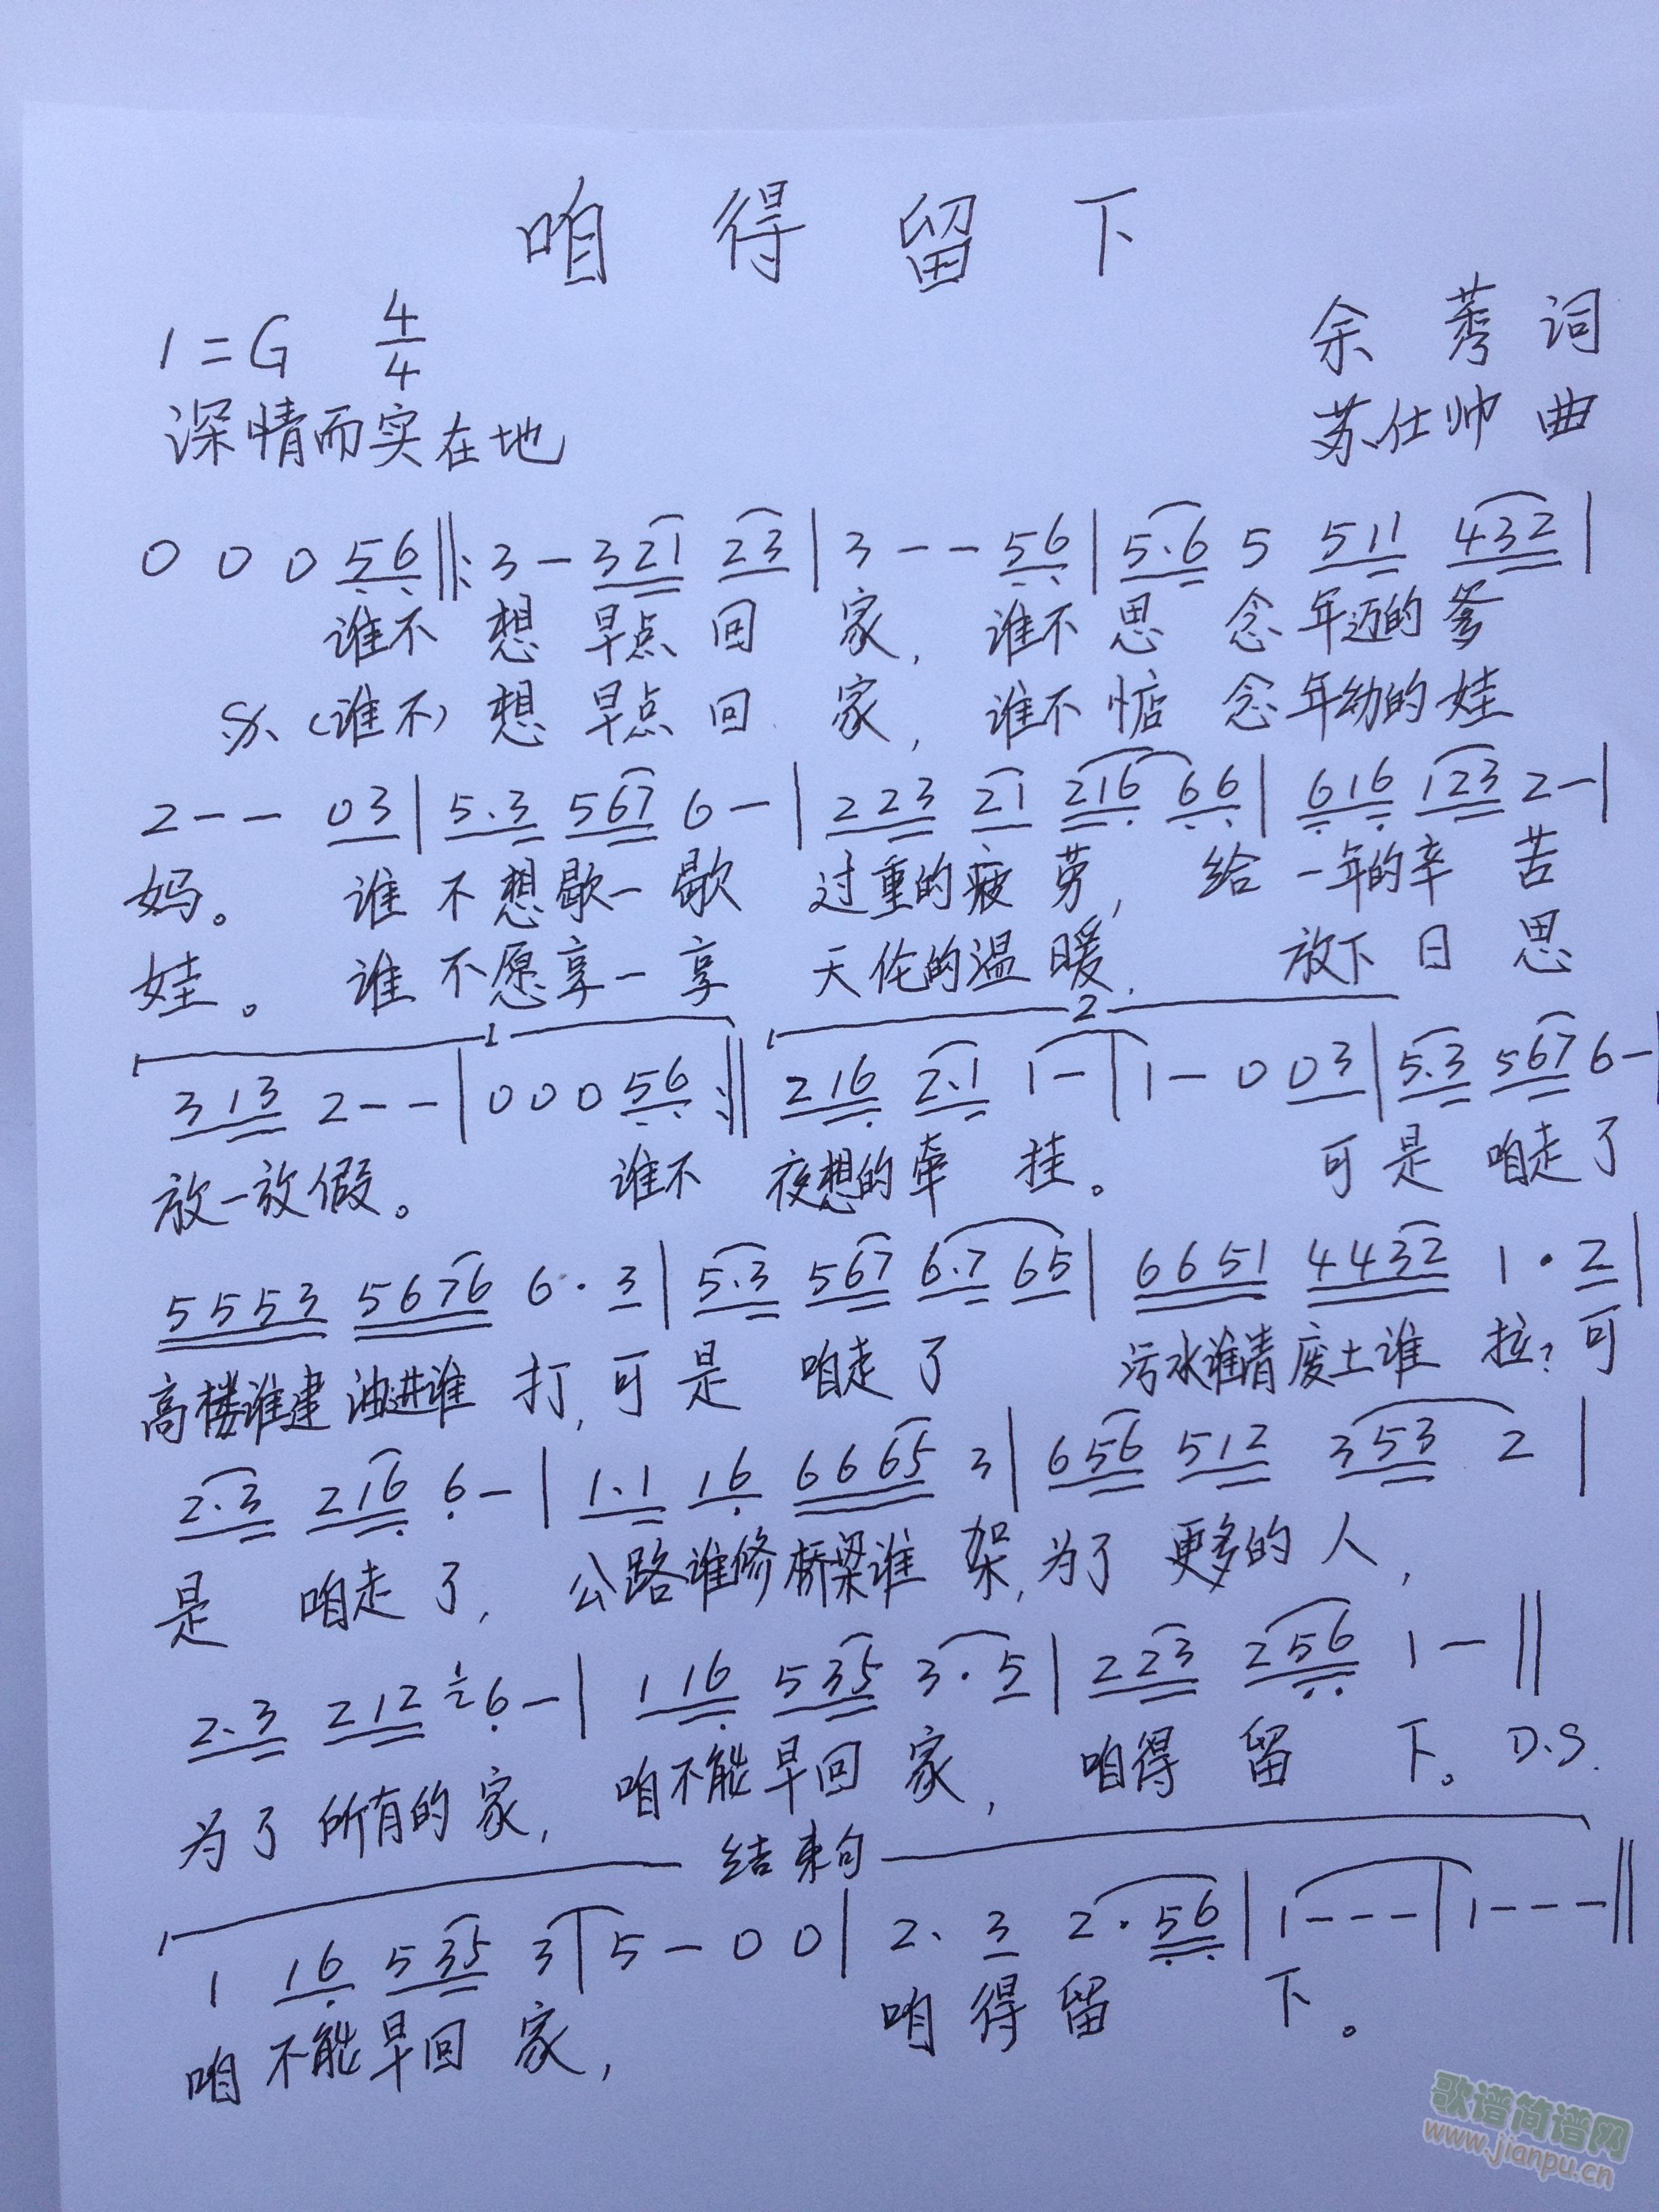 咱得留下
1=G 4/4
余莠词
深情而实在地
苏仕帅 曲
0 0 0 5 6 ‖: 3 - 3 2 1 2 3 | 3 - - 5 6 | 5.6 5 5 1 1 4 3 2 |
谁不 想 早点 回 家, 谁不 思 念 年迈的 爹
(谁不) 想 早点 回 家, 谁不 惦 念 年幼的 娃
2 - - 0 3 | 5.3 5 6 7 6 - | 2 2 3 2 1 2 1 6 6 6 | 6 1 6 1 2 3 2 - |
妈。 谁 不想歇一歇 过重的疲劳, 给 一年的辛 苦
娃。 谁 不愿享一享 天伦的温暖, 放下 日 思
1 2
3 1 3 2 - - | 0 0 0 5 6 :‖ 2 1 6 2.1 1 - | 1 - 0 0 3 | 5.3 5 6 7 6 - |
放一放假。 谁不 夜想的牵 挂。 可 是 咱走了
5 5 5 3 5 6 7 6 6 . 3 | 5.3 5 6 7 6.7 6 5 | 6 6 5 1 4 4 3 2 1 . 2 |
高楼谁建 油进谁 打, 可 是 咱走 了 污水谁清 废土谁 拉? 可
2.3 2 1 6 6 - | 1.1 1 6 6 6 6 5 3 | 6 5 6 5 1 2 3 5 3 2 |
是 咱走 了, 公路谁修桥梁谁 架, 为了 更多的 人,
2.3 2 1 2 1 2 6 - | 1 1 6 5 3 5 3 . 5 | 2 2 3 2 5 6 1 - ‖
为了 所有的 家, 咱不能早回 家, 咱得 留 下。 D.S.
结束句
1 1 6 5 3 5 3 | 5 - 0 0 | 2. 3 2 . 5 6 | 1 - - - | 1 - - - ‖
咱 不能早回 家, 咱 得 留 下。
歌谱简谱网
www.jianpu.cn